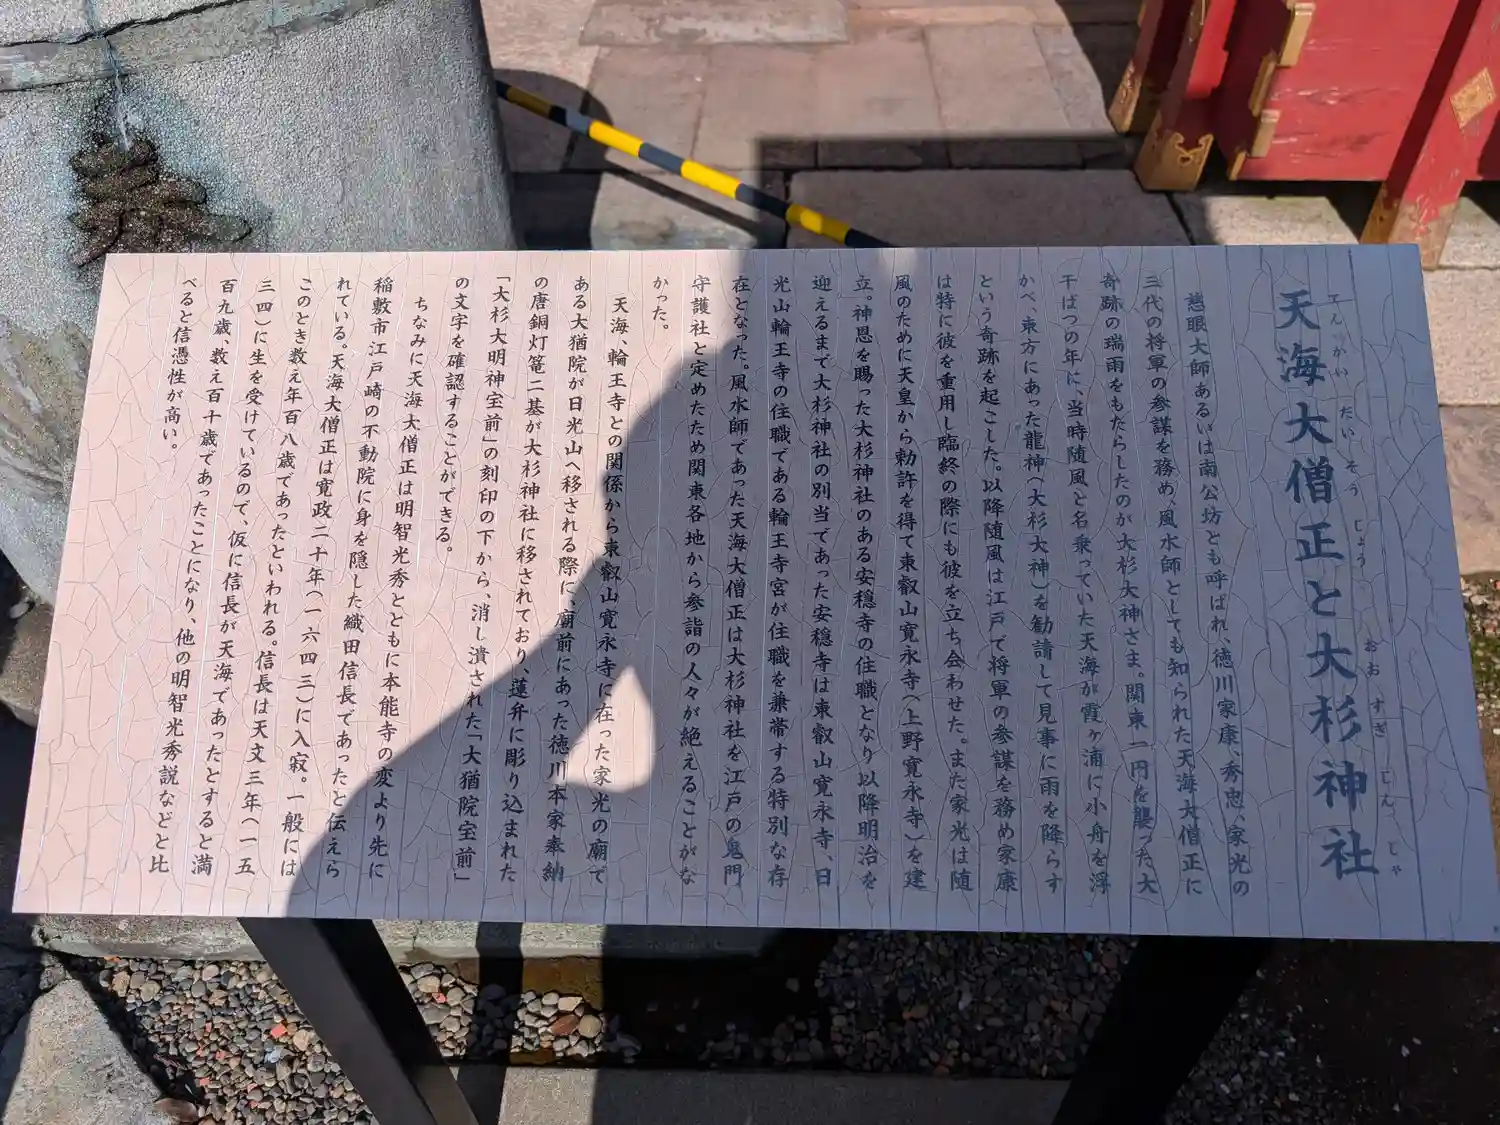 天海大僧正と大杉神社
てんかい だいそうじょう おおすぎ じんじゃ
慈眼大師あるいは南公坊とも呼ばれ、徳川家康、秀忠、家光の
三代の将軍の参謀を務め、風水師としても知られた天海大僧正に
奇跡の瑞雨をもたらしたのが大杉大神さま。関東一円を襲った大
干ばつの年に、当時随風と名乗っていた天海が霞ヶ浦に小舟を浮
かべ、東方にあった龍神(大杉大神)を勧請して見事に雨を降らす
という奇跡を起こした。以降随風は江戸で将軍の参謀を務め家康
は特に彼を重用し臨終の際にも彼を立ち会わせた。また家光は随
風のために天皇から勅許を得て東叡山寛永寺(上野寛永寺)を建
立。神恩を賜った大杉神社のある安穏寺の住職となり以降明治を
迎えるまで大杉神社の別当であった安穏寺は東叡山寛永寺、日
光山輪王寺の住職である輪王寺宮が住職を兼帯する特別な存
在となった。風水師であった天海大僧正は大杉神社を江戸の鬼門
守護社と定めたため関東各地から参詣の人々が絶えることがな
かった。
天海、輪王寺との関係から東叡山寛永寺に在った家光の廟で
ある大猶院が日光山へ移される際に、廟前にあった徳川本家奉納
の唐銅灯篭二基が大杉神社に移されており、蓮弁に彫り込まれた
「大杉大明神宝前」の刻印の下から、消し潰された「大猶院宝前」
の文字を確認することができる。
ちなみに天海大僧正は明智光秀とともに本能寺の変より先に
稲敷市江戸崎の不動院に身を隠した織田信長であったと伝えら
れている。天海大僧正は寛政二十年(一六四三)に入寂。一般には
このとき数え年百八歳であったといわれる。信長は天文三年(一五
三四)に生を受けているので、仮に信長が天海であったとすると満
百九歳、数え百十歳であったことになり、他の明智光秀説などと比
べると信憑性が高い。